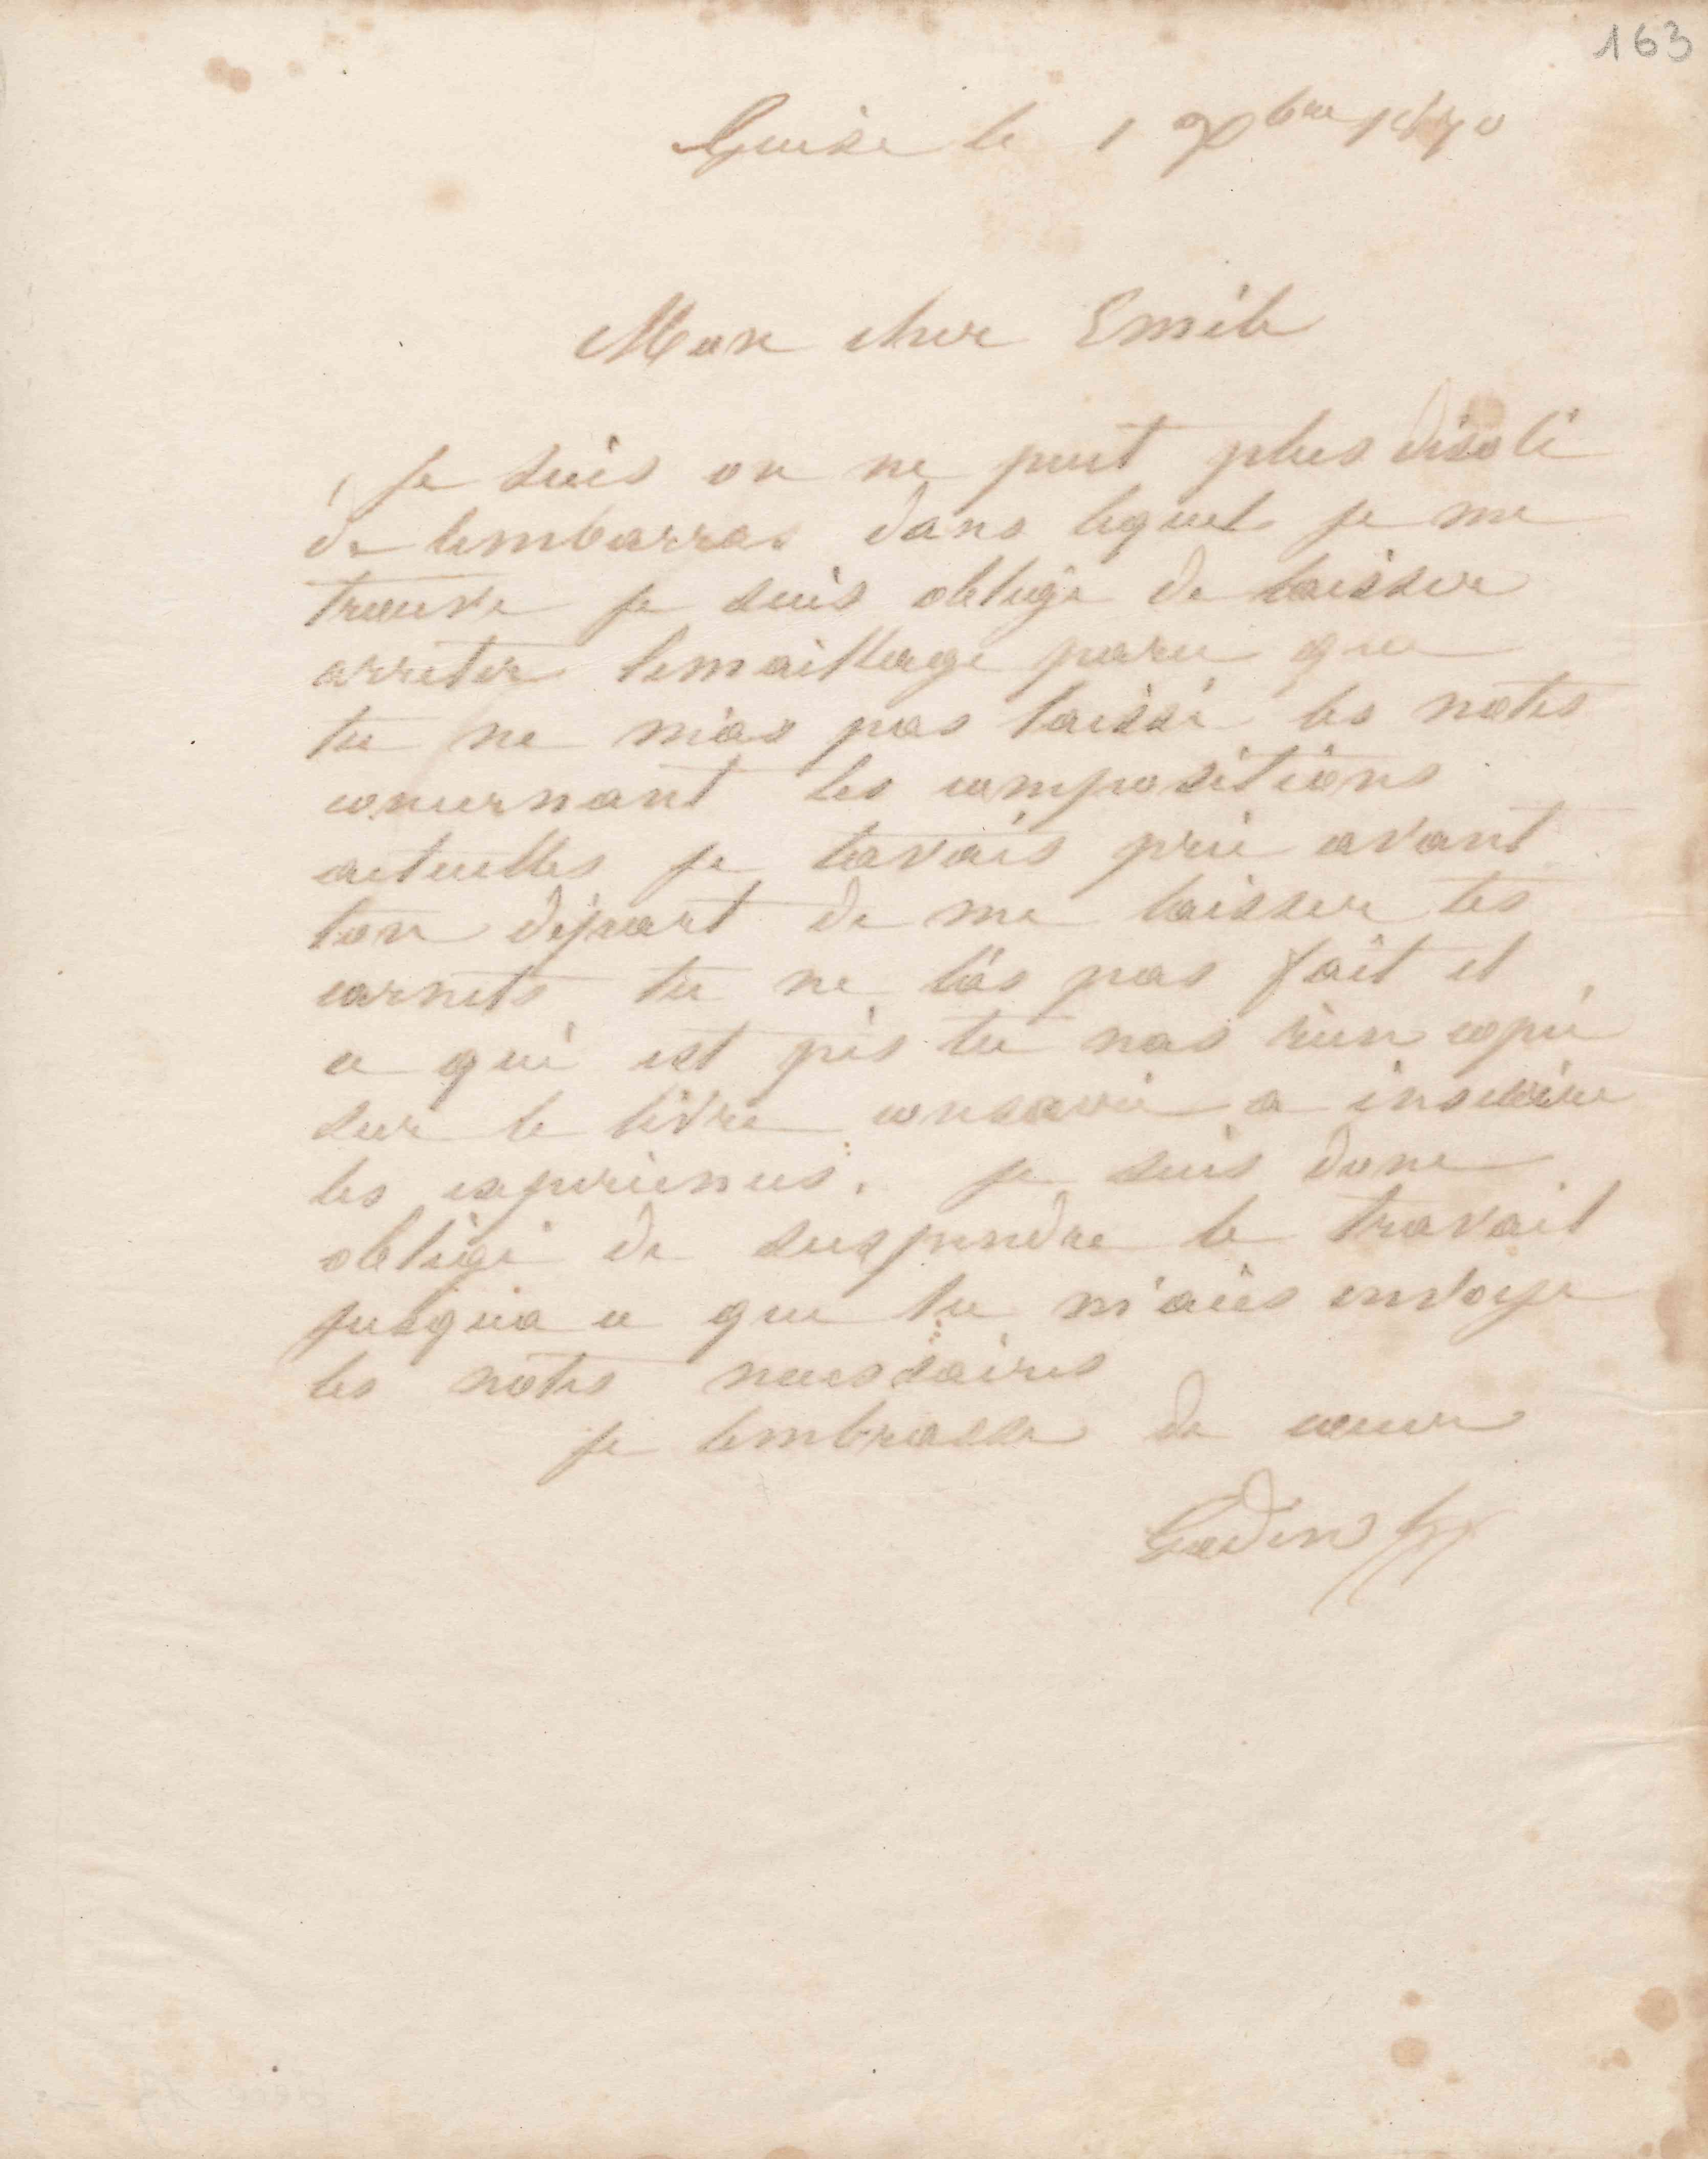 163
Guise le 1 Xbre 1870
Mon cher Emile
Je suis on ne peut plus désolé
de lembarras dans lequel je me
trouve je suis obligé de laisser
arreter lemaillage parce que
tu ne m'as pas laissé les notes
concernant les compositions
actuelles je tavais prié avant
ton départ de me laisser tes
carnets tu ne l'as pas fait et
ce qui est pis tu nas rien copié
sur le livre consacré a inscrire
les expériences. je suis donc
obligé de suspendre le travail
jusqua ce que tu m'aies envoye
les notes necessaires
je tembrasse de cœur
Godin